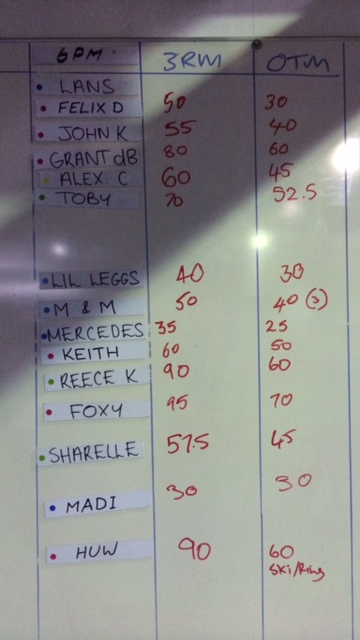 6PM. 3RM OTM
LANS
FELIX D 50 30
JOHN K 55 40
GRANT dB 80 60
ALEX. C 60 45
TOBY 70 52.5
LIL LEGGS 40 30
M & M 50 40 (3)
MERCEDES 35 25
KEITH 60 50
REECE K 90 60
FOXY 95 70
SHARELLE 57.5 45
MADI 30 30
HUW 90 60
Ski/Ring